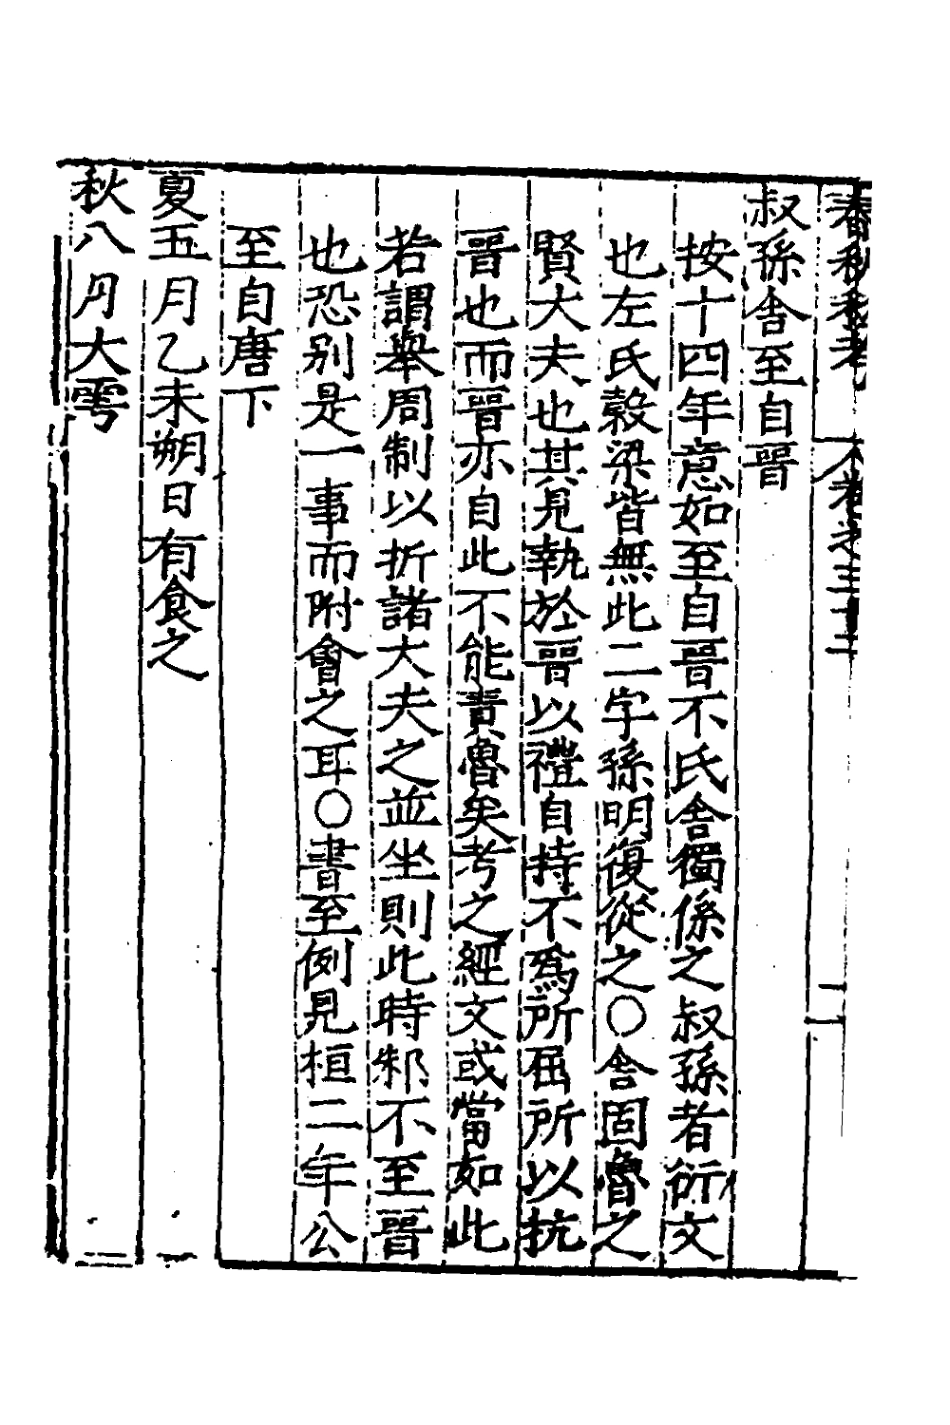 叔孫舎至自晉
按十四年意如至自晉不氏舎獨係之叔孫者衍文
也左氏榖梁皆無此二字孫明復從之〇舎固魯之
賢大夫也其見執於晉以禮自持不爲所屈所以抗
晉也而晉亦自此不能責魯矣考之經文或當如此
若謂舉周制以折諸大夫之並坐則此時邾不至晉
也恐别是一事而附會之耳〇書至例見桓二年公
至自唐下
夏五月乙未朔日有食之
秋八月大雩